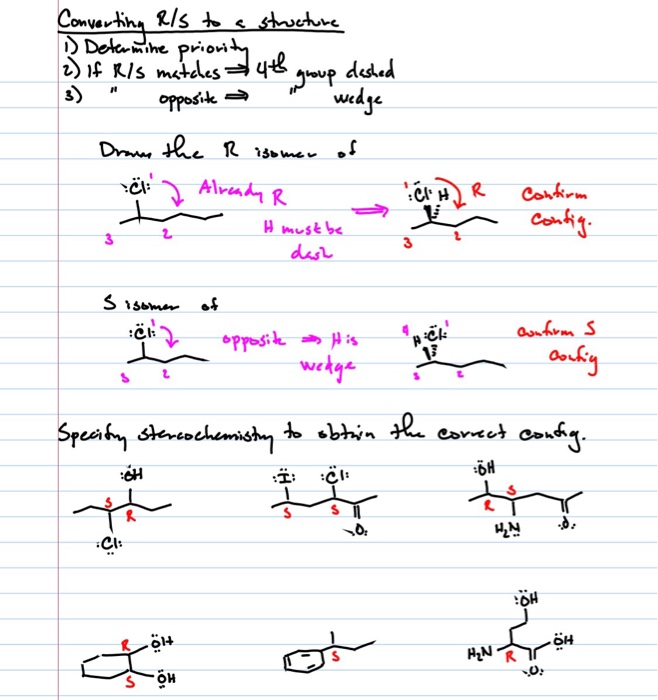 Converting R/S to a structure
1) Determine priority
2) If R/S matches ⇒ 4th group dashed
3) " opposite ⇒ " wedge
Draw the R isomer of
:Cl: 1 Already R
3 2 H must be dash
⇒
1 :Cl: H R Confirm Config.
3 2
S isomer of
:Cl: 1 opposite ⇒ H is wedge
3 2
4 H :Cl: 1 Confirm S Config
3 2
Specify stereochemistry to obtain the correct config.
:ÖH :I: :Cl: :ÖH
S R S S R S
:Cl: O: H₂N :O:
:ÖH
R ÖH S H₂N R ÖH
S ÖH :O: